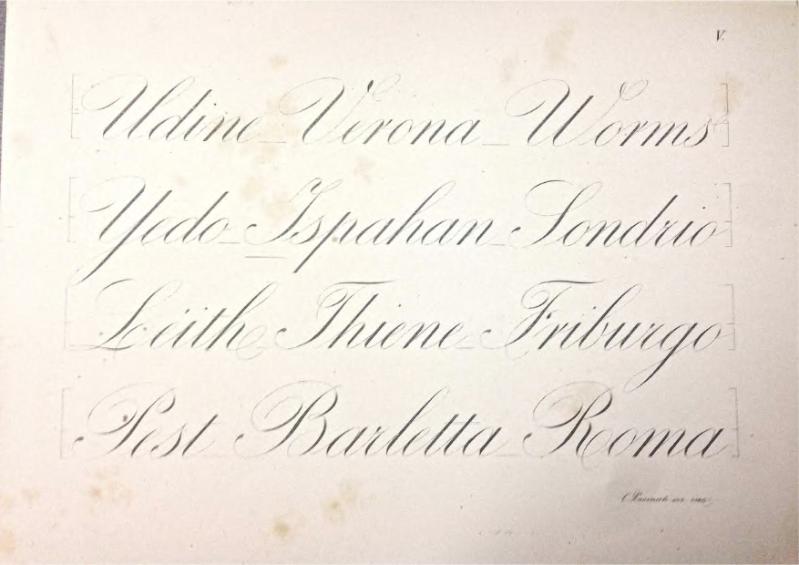 V.
Udine Verona Worms
Yedo Ispahan Sondrio
Leith Thiene Friburgo
Pest Barletta Roma